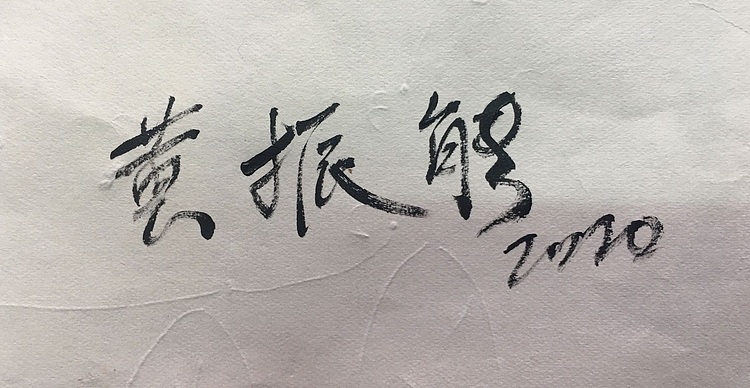 黄振能
2020